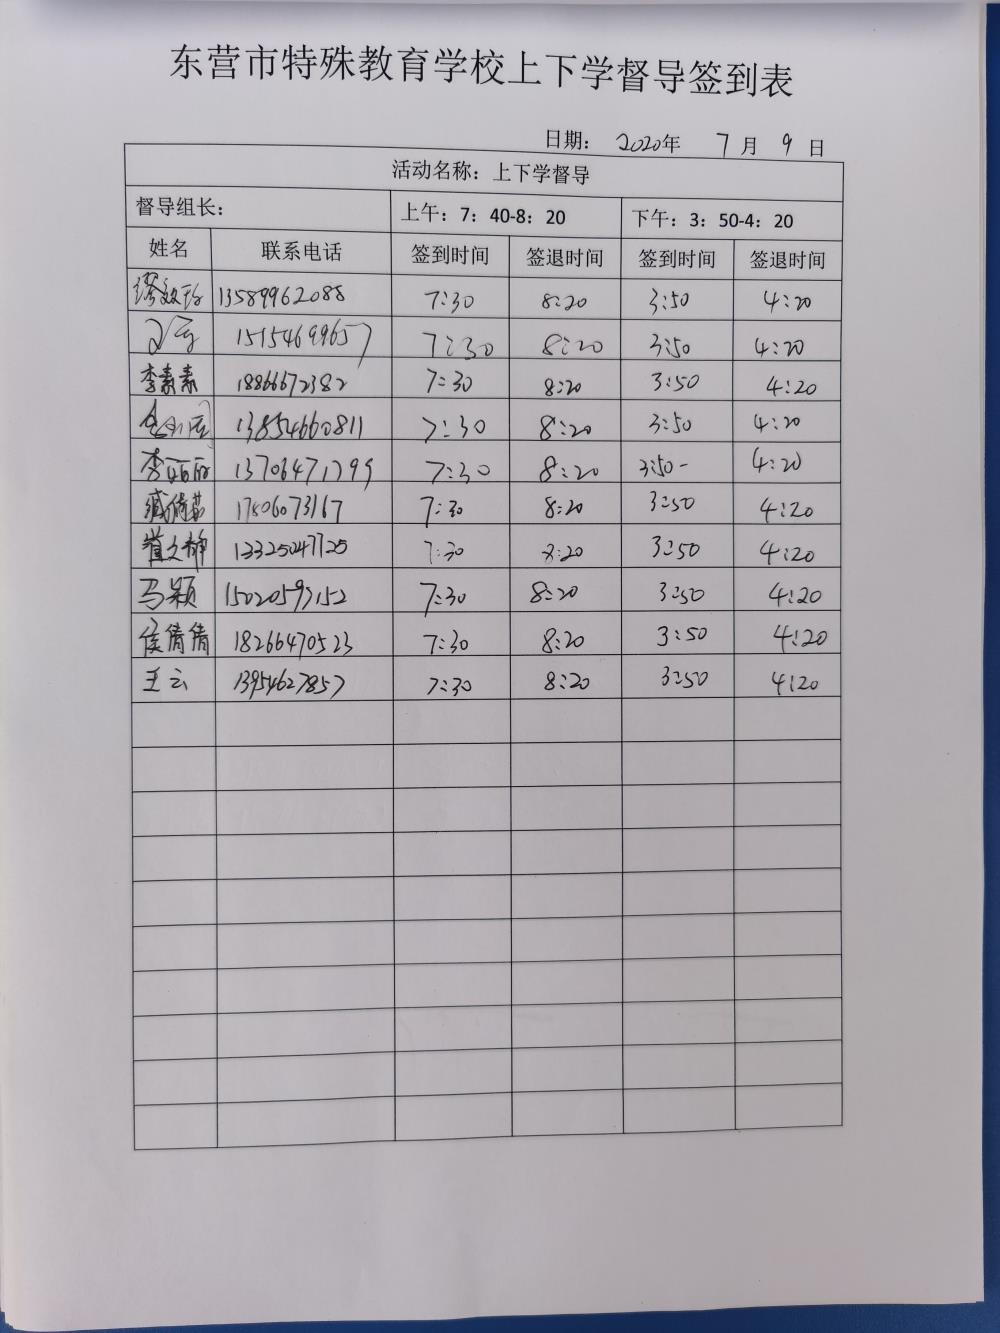 东营市特殊教育学校上下学督导签到表
日期: 2020年 7月 9日
活动名称: 上下学督导
督导组长: 上午: 7: 40-8: 20 下午: 3: 50-4: 20
姓名 联系电话 签到时间 签退时间 签到时间 签退时间
13589962088 7:30 8:20 3:50 4:20
15154699657 7:30 8:20 3:50 4:20
李素素 18866672382 7:30 8:20 3:50 4:20
13854660811 7:30 8:20 3:50 4:20
李 13706471799 7:30 8:20 3:50- 4:20
臧倩茹 17606073167 7:30 8:20 3:50 4:20
崔文静 13325047725 7:30 8:20 3:50 4:20
马颖 15020597152 7:30 8:20 3:50 4:20
侯倩倩 18266470523 7:30 8:20 3:50 4:20
王云 13954627857 7:30 8:20 3:50 4:20